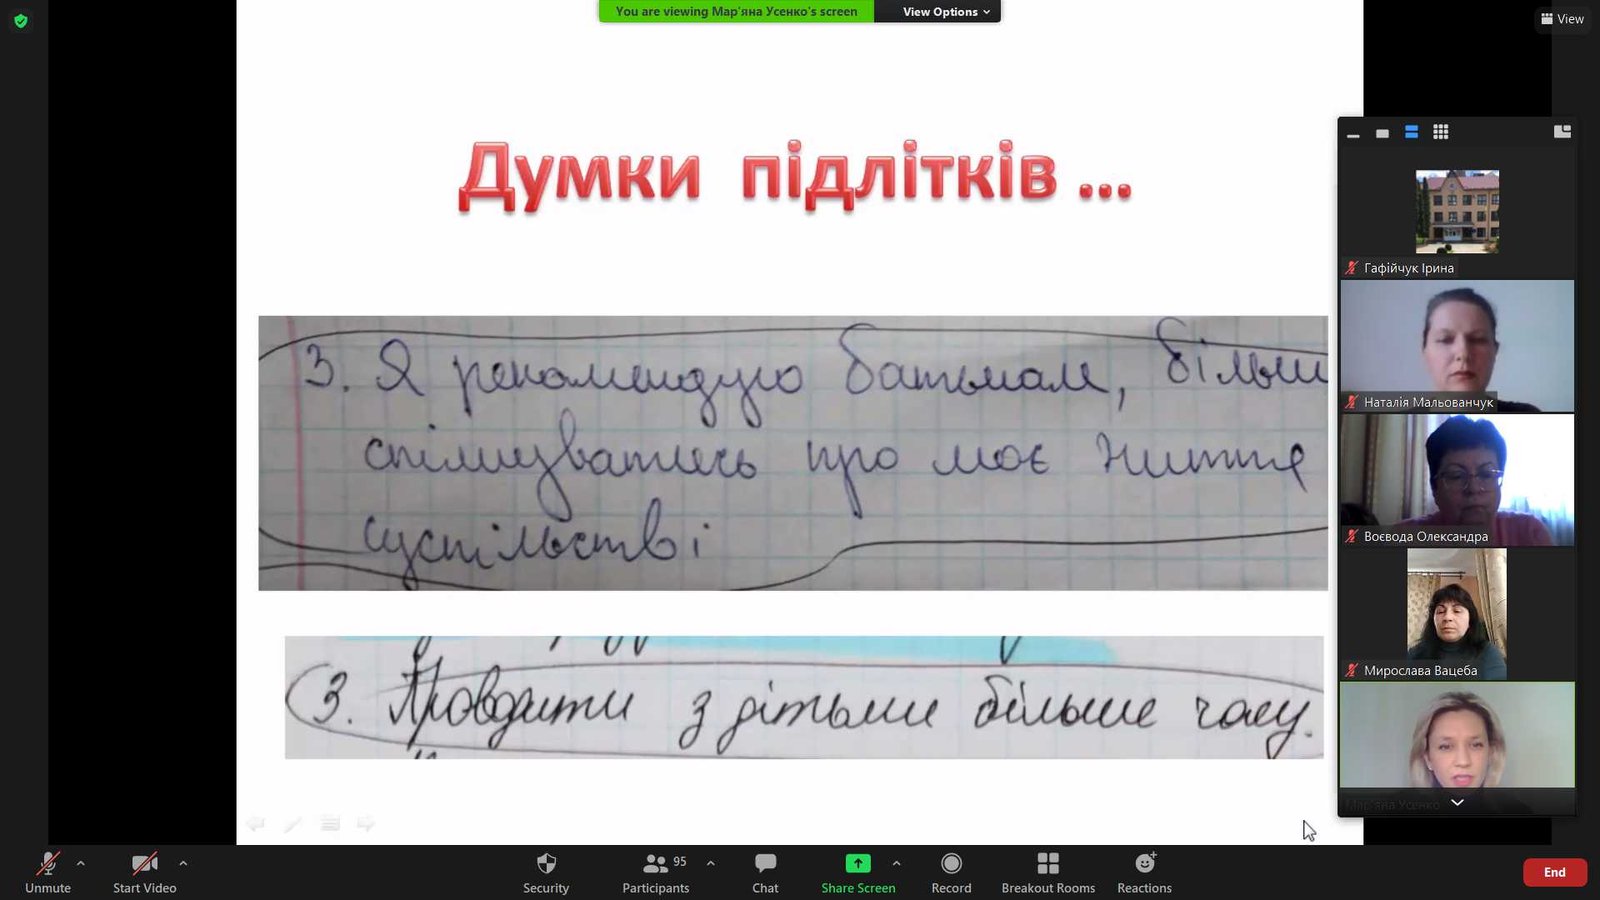 You are viewing Мар'яна Усенко's screen
View Options
View
Думки підлітків ...
3. Я рекомендую батькам, більш
спілкуватись про моє життя
суспільстві
3. Проводити з дітьми більше часу.
Гафійчук Ірина
Наталія Мальованчук
Воєвода Олександра
Мирослава Вацеба
Мар'яна Усенко
Unmute
Start Video
Security
95
Participants
Chat
Share Screen
Record
Breakout Rooms
Reactions
End